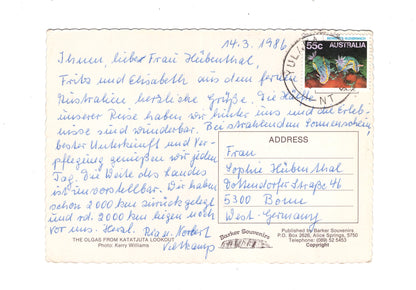 14.3.1986
Ihnen, lieber Frau Hübenthal,
Fritz und Elisabeth aus dem fernen
Australien herzliche Grüße. Die Hälfte
unserer Reise haben wir hinter uns und die Erleb-
nisse sind wunderbar. Bei strahlendem Sonnenschein,
bester Unterkunft und Ver-
pflegung genießen wir jeden
Tag. Die Weite des Landes
ist unvorstellbar. Wir haben
schon 2000 km zurückgelegt
und rd. 2000 km liegen noch
vor uns. Herzl. Ria u. Norbert
Veltkamp
THE OLGAS FROM KATATJUTA LOOKOUT
Photo: Kerry Williams
55c
AUSTRALIA
YULARA
NT
ADDRESS
Frau
Sophie Hübenthal
Dottendorfer Straße 46
5300 Bonn
West-Germany
Barker Souvenirs
Published by Barker Souvenirs
P.O. Box 2626, Alice Springs, 5750
Telephone: (089) 52 5453
Copyright